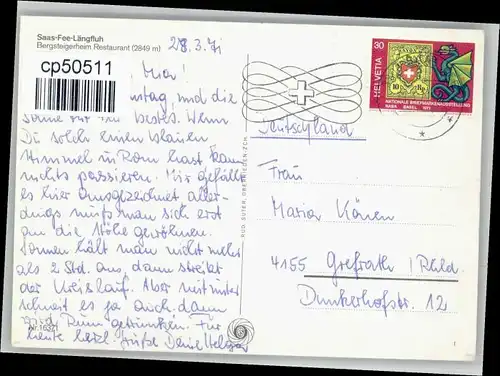 Saas-Fee-Längfluh
Bergsteigerheim Restaurant (2849 m)
28.3.71
cp50511
tag, und die
Sonne
bestes. Wenn
Du solch einen blauen
Himmel in Rom hast kann
nichts passieren. Mir gefällt
es hier ausgezeichnet aller-
dings muß man sich erst
an die Höhe gewöhnen.
Sonnen hält man nicht mehr
als 2 Std. aus, dann streikt
der Kreislauf. Aber mitunter
schneit es ja auch, dann
wird Rum getrunken. Für
heute herzl. Grüße Deine Helga
Nr. 1637
ROD. SUTER, OBERRIEDEN-ZCH
30
HELVETIA
NATIONALE BRIEFMARKENAUSSTELLUNG
NABA BASEL 1971
Deutschland
Frau
4155 Grefrath / Rhld.
Dunkerhofstr. 12